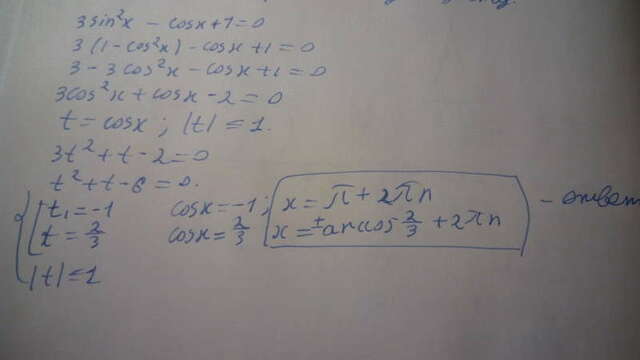 3sin²x - cosx+1=0
3(1-cos²x)-cosx+1=0
3-3cos²x-cosx+1=0
3cos²x+cosx-2=0
t=cosx; |t|≤1.
3t²+t-2=0
t²+t-6=0.
t₁=-1 cosx=-1; x=π+2πn
t=2/3 cosx=2/3 x=±arccos 2/3+2πn - ответ
|t|≤1